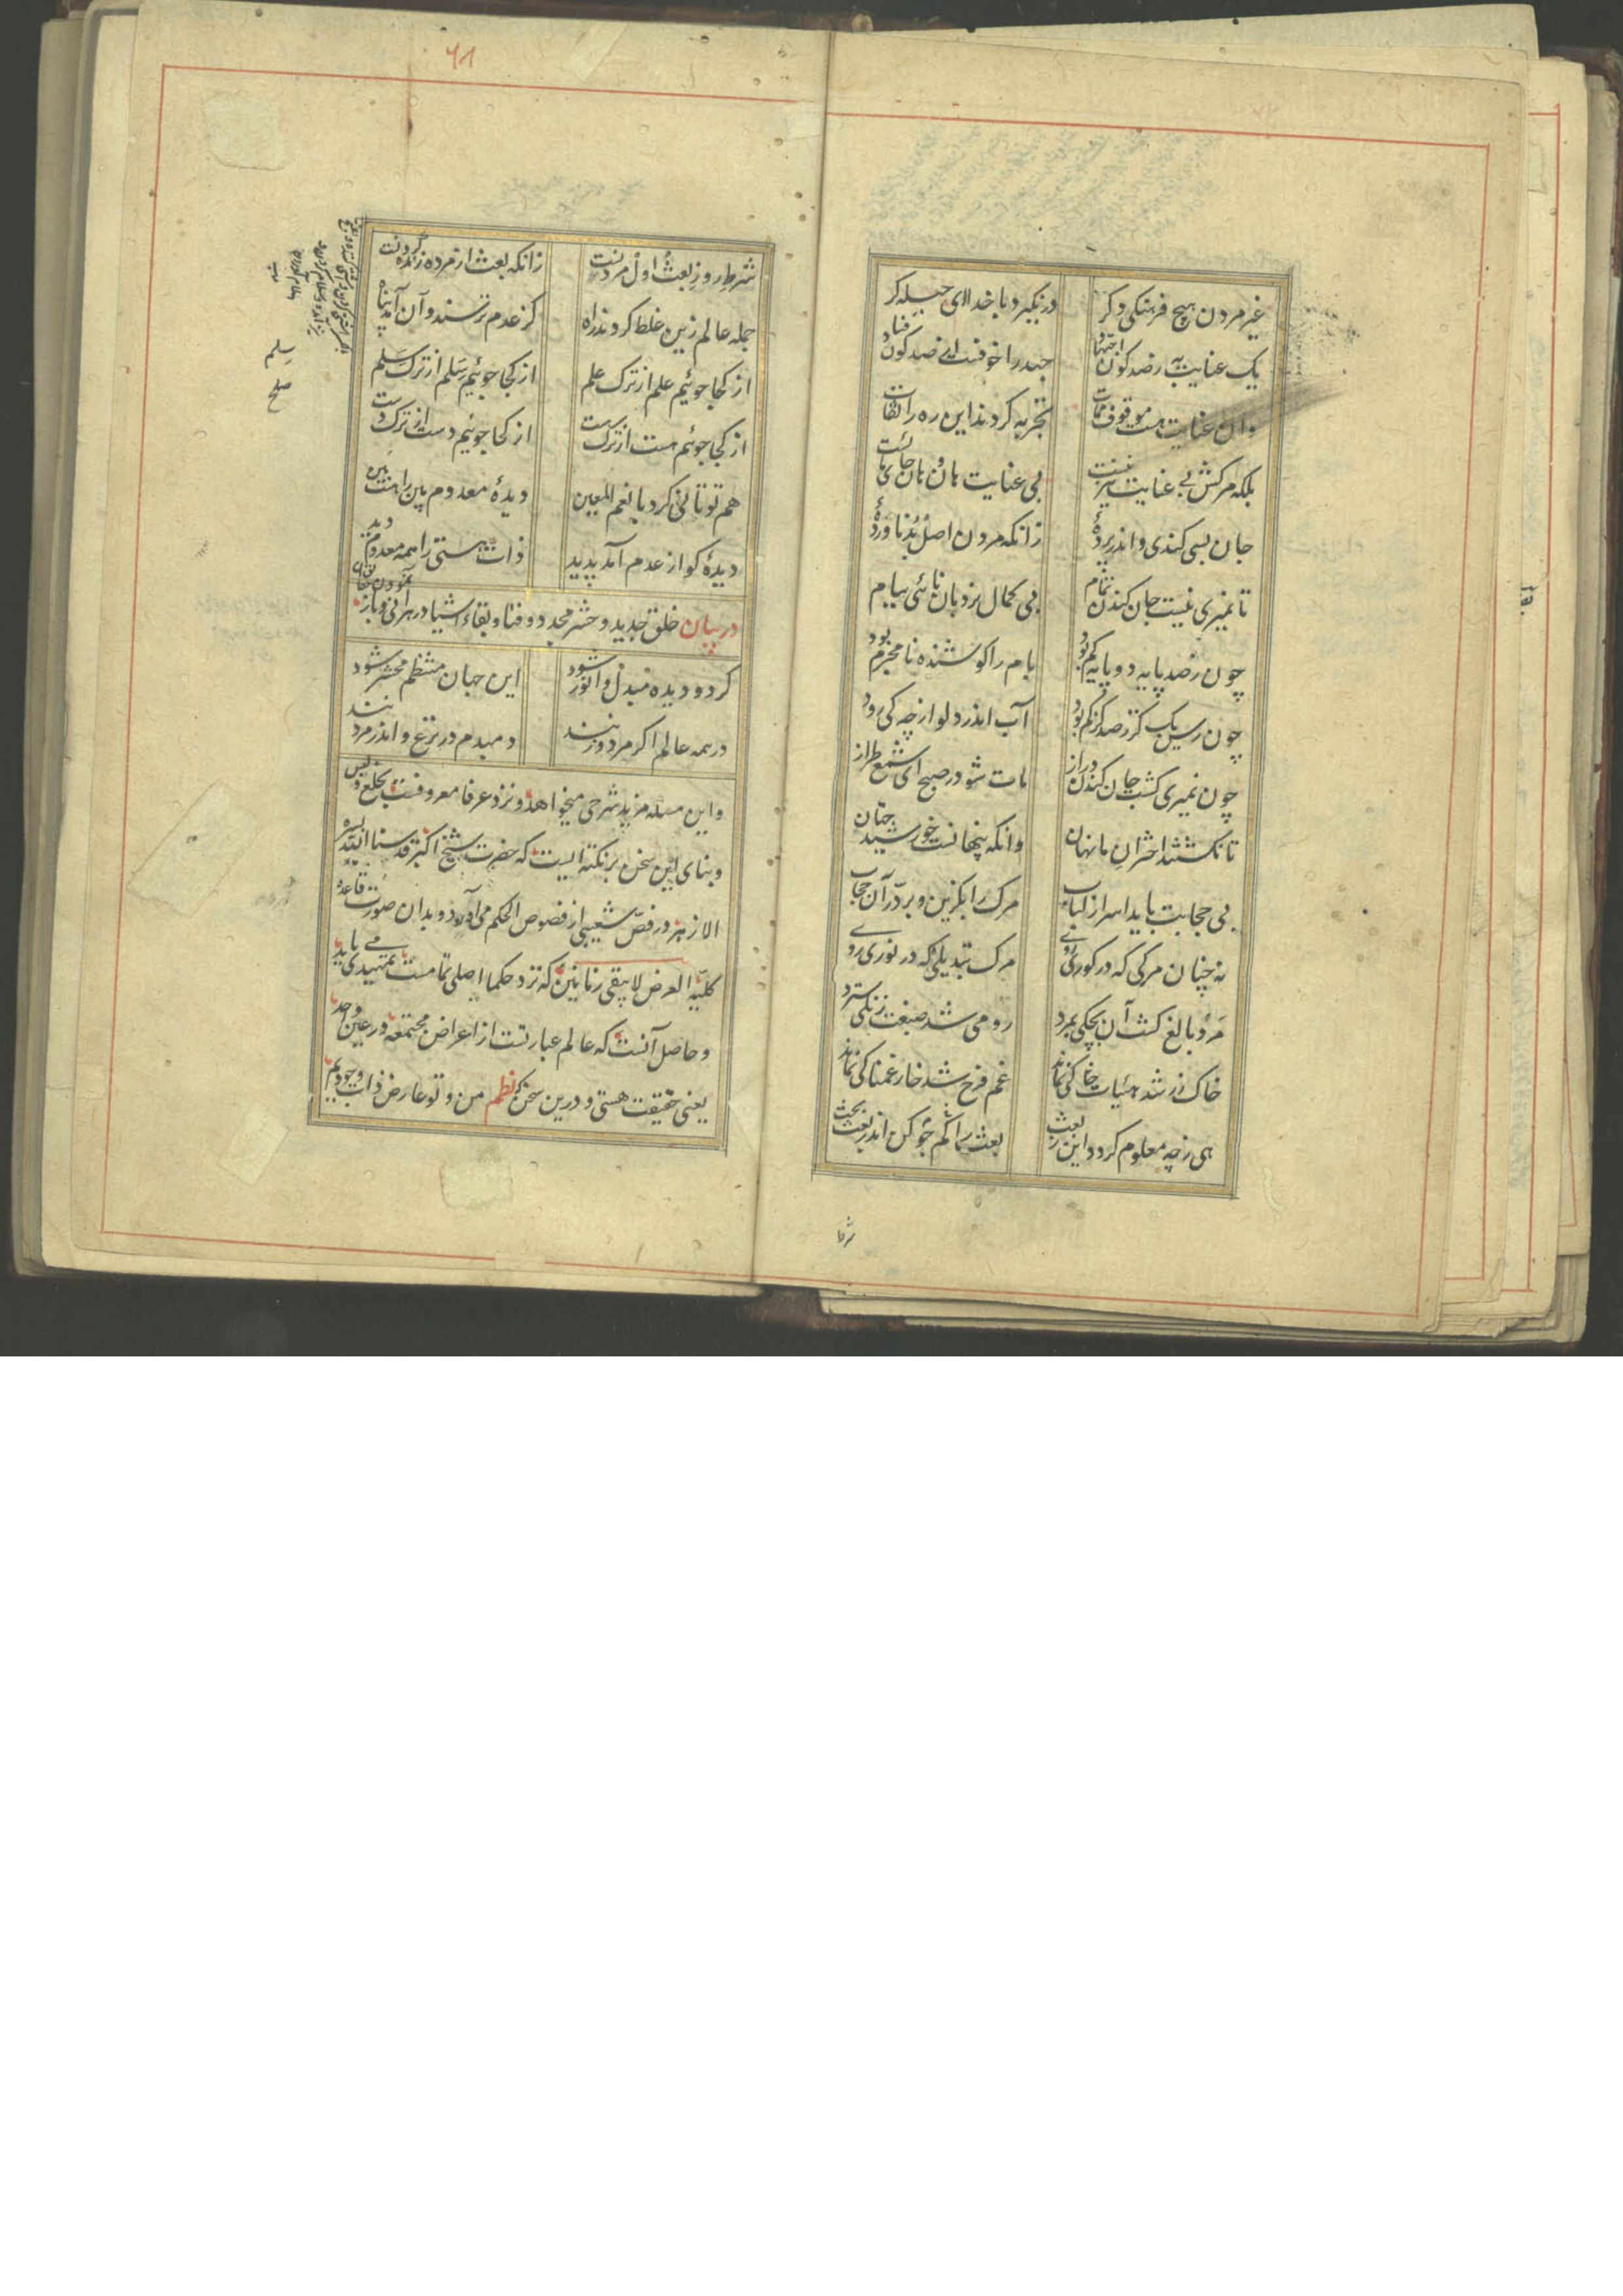 غیر مردن هیچ فرهنگی دکر در نکیرد با خدا ای حیله کر
یک عنایت به ز صد کون اجتهاد جهد را خوفست از صد کون فساد
وان عنایت هست موقوف ممات تجربه کردند این ره را ثقات
بلکه مرکش بی عنایت نیز نیست بی عنایت هان و هان جائی مایست
جان بسی کندی و اندر پردهٔ زانکه مردن اصل بُد ناوردهٔ
تا نمیری نیست جان کندن تمام بی کمال نردبان نائی ببام
چون ز صد پایه دو پایه کم بود بام را کوشنده نامحرم بود
چون رسن یک کز ز صد کز کم بود آب اندر دلو از چه کی رود
چون نمیری کشت جان کندن دراز مات شو در صبح ای شمع طراز
تا نکشتند اختران ما نهان دانکه پنهانست خورشید جهان
بی حجابت باید اسرار لباب مرک را بکزین و بردر آن حجاب
نه چنان مرکی که در کوری روی مرک تبدیلی که در نوری روی
مرد بالغ کشت آن بچکی بمرد رومی شد صبغت زنکی سترد
خاک زر شد هیئات خاکی نماند غم فرح شد خار غمناکی نماند
هی ز چه معلوم کردد این ز بعث بعث را کم جو کن اندر بعث بحث
شرط
۶۸
شرط روز بعث اول مردنست زانکه بعث از مرده زنده کردنست
جمله عالم زین غلط کردند راه کز عدم ترسند و آن آمد پناه
از کجا جوئیم علم از ترک علم از کجا جوئیم سلم از ترک سلم
از کجا جوئیم هست از ترک هست از کجا جوئیم دست از ترک دست
هم تو تانی کرد یا نعم المعین دیدهٔ معدوم بین را هست بین
دیدهٔ کو از عدم آمد پدید ذات هستی را همه معدوم دید
در بیان خلق جدید و حشر مجدد و فنا و بقاء اشیا در هر آنی و باز نمودن
این جهان منتظم محشر شود کر دو دیده مبدل و انور شود
در همه عالم اکر مرد و زنند دمبدم در نزع و اندر مردنند
و این مسئله مزید شرحی میخواهد و نزد عرفا معروفست بخلع و لبس
و بنای این سخن بر نکته ایست که حضرت شیخ اکبر قدسنا الله بسره
الازهر در فص شعیبی از فصوص الحکم می آورد و بدان صورت قاعده
کلیّه العرض لا یبقی زمانین که نزد حکما اصلی تمامست تمهیدی می یابد
و حاصل آنست که عالم عبارتست از اعراض مجتمعه در عین واحد
یعنی حقیقت هستی و درین سخن نظم من و تو عارض ذات وجودیم
سلم
صلح